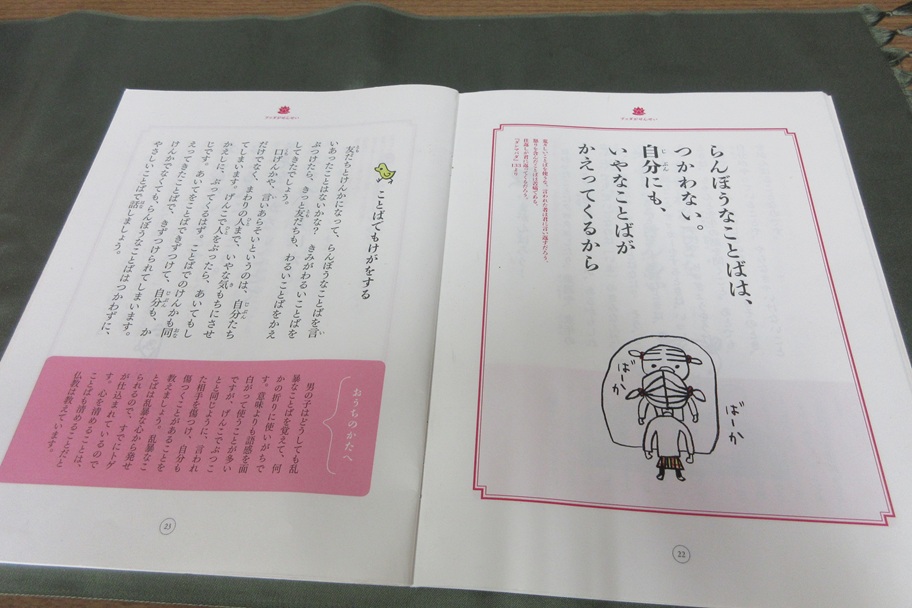 ブッダがせんせい
らんぼうなことばは、
つかわない。
自分にも、
いやなことばが
かえってくるから
『ダンマパダ』133より
ばーか
ばーか
22
ブッダがせんせい
ことばでもけがをする
友だちとけんかになって、らんぼうなことばを言
いあったことはないかな? きみがわるいことばを
ぶつけたら、きっと友だちも、わるいことばをかえ
してきたでしょう。
口げんかや、言いあらそいというのは、自分たち
だけでなく、まわりの人まで、いやな気もちにさせ
てしまいます。げんこで人をぶったら、あいてもし
かえしに、ぶってくるはず。ことばでのけんかも同
じです。あいてをことばできずつけて、自分も、か
えってきたことばで、きずつけられてしまいます。
けんかでなくても、らんぼうなことばはつかわずに、
やさしいことばで話しましょう。
おうちのかたへ
男の子はどうしても乱
暴なことばを覚えて、何
かの折りに使いがちで
す。意味よりも語感を面
白がって使うことが多い
ですが、げんこでぶつこ
とと同じように、言われ
た相手を傷つけ、自分も
傷つくことがあることを
教えましょう。乱暴なこ
とばは乱暴な心から発せ
られるので、すでにトゲ
が仕込まれているので
す。心を清めることは、
ことばも清めることだと
仏教は教えています。
23